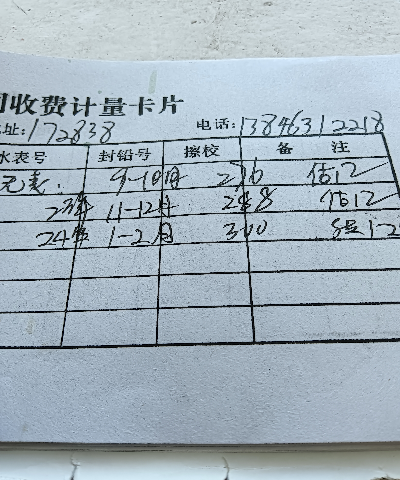 收费计量卡片
址:172838 电话:13846312218
水表号 封铅号 擦校 备 注
无表. 9-10月 276 估12
23年 11-12月 288 估12
24年 1-2月 300